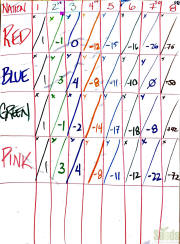 NATION 1 2 3 4 5 6 7 8
RED 1 -1 0 -12 -15 -16 -26 -76
BLUE 1 3 4 -8 -11 -10 0 -50
GREEN 1 -1 -2 -14 -17 -18 -8
PINK 1 3 4 -8 -11 -12 -22 -72